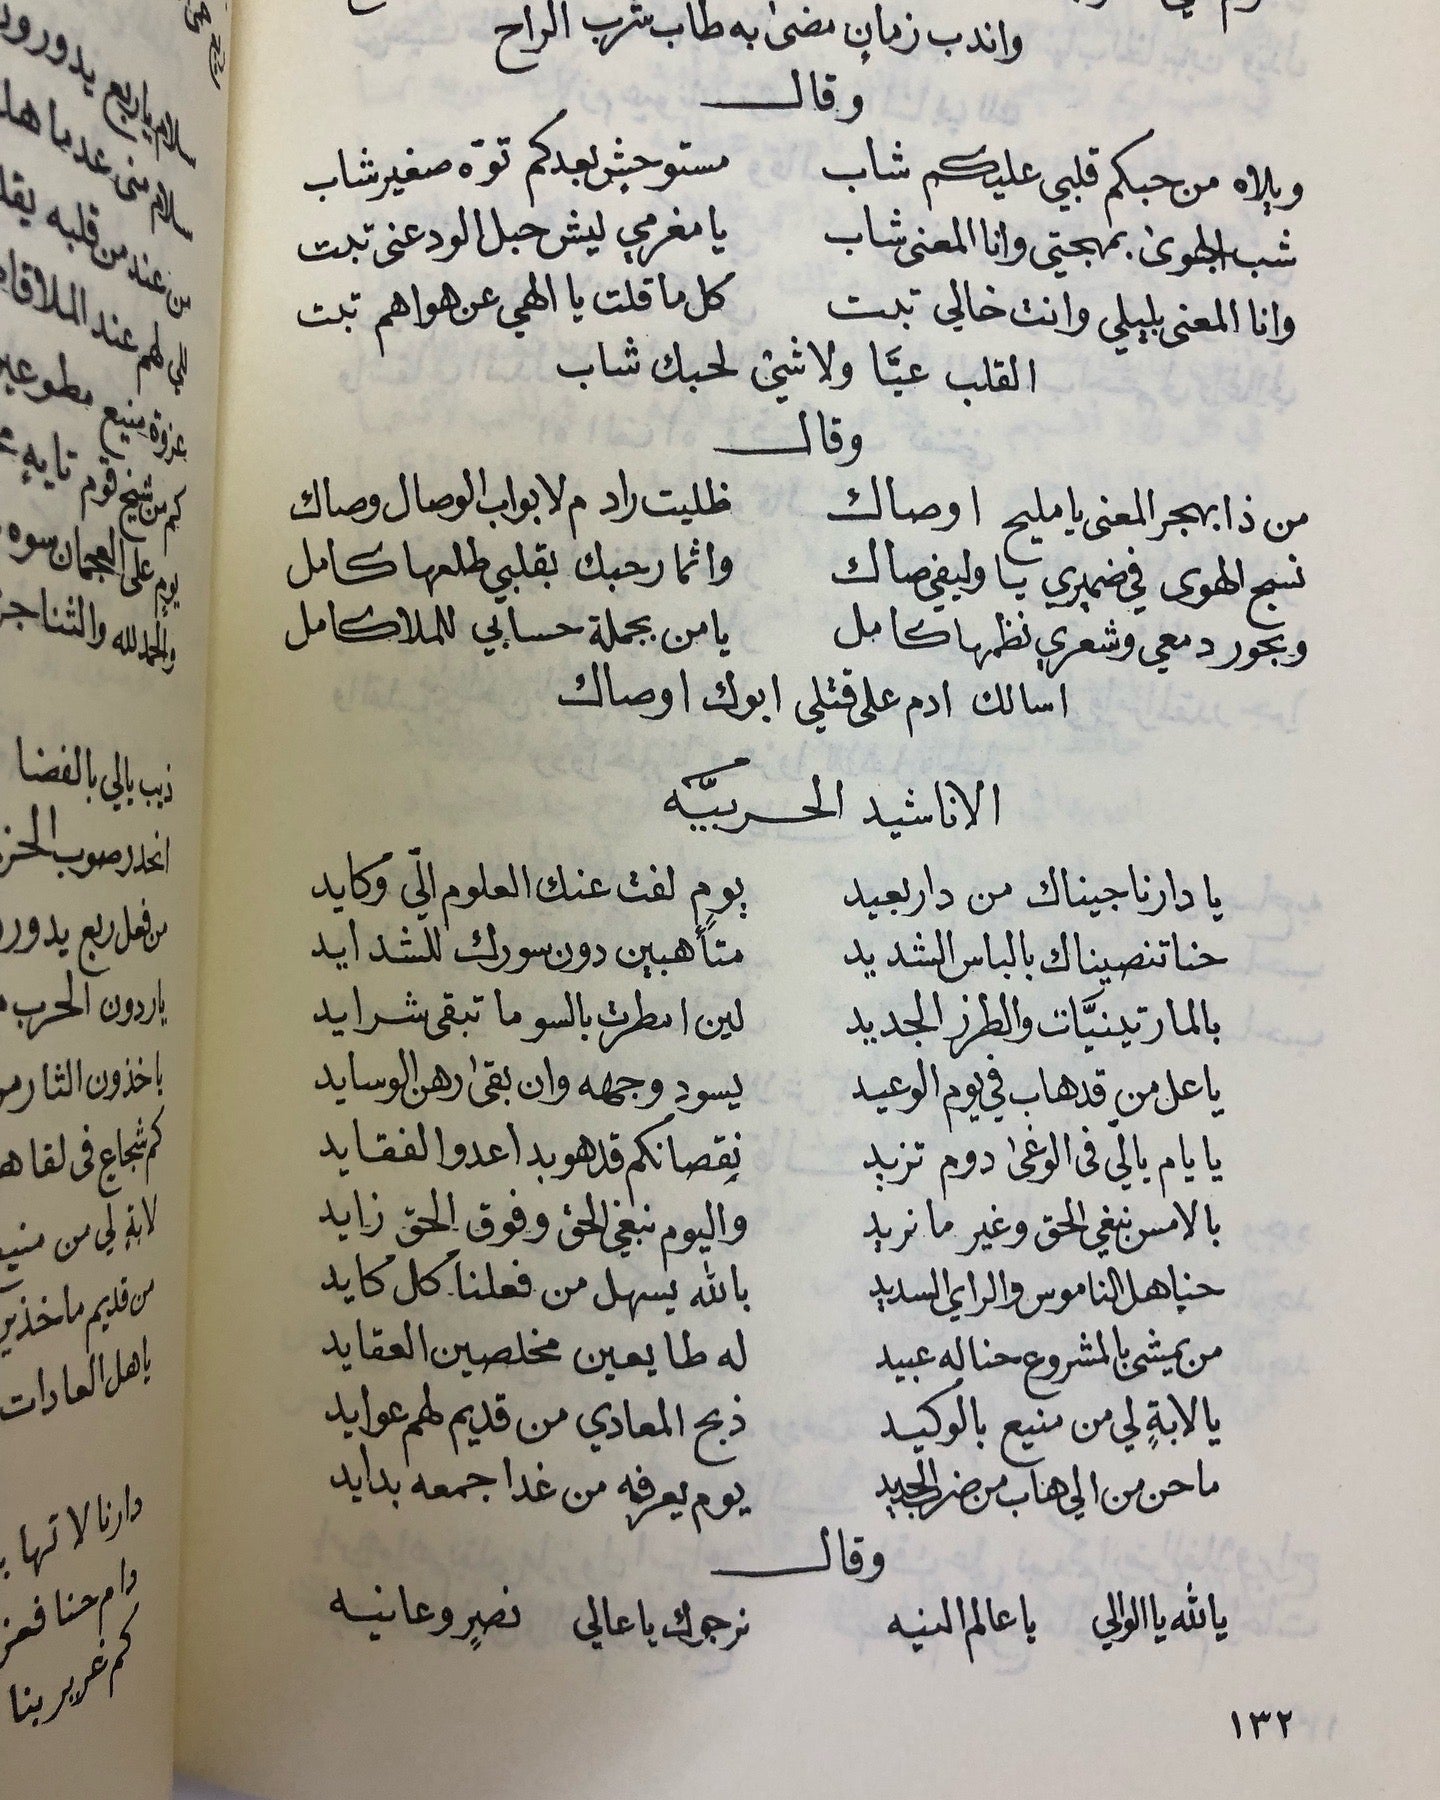 واندب زمانٍ مضى به طاب شرب الراح
وقال
ويلاه من حبكم قلبي عليكم شاب مستوحشٍ بعدكم توّه صغير شاب
شب الجوى بمهجتي وانا المعنى شاب يا مغرمي ليش حبل الود عني تبت
وانا المعنى بليلي وانت خالي تبت كل ما قلت يا الهي عن هواهم تبت
القلب عيَّا ولا شيٍ لحبك شاب
وقال
من ذا بهجر المعنى يا مليح اوصاك ظليت رادم لابواب الوصال وصاك
نسج الهوى في ضميري يا وليفي صاك واثمار حبك بقلبي طلعها كامل
وبحور دمعي وشعري نظمها كامل يا من بجملة حسابي للملا كامل
اسالك ادم على قتلي ابوك اوصاك
الاناشيد الحربيَّه
يا دارنا جيناك من دار بعيد يومٍ لفت عنك العلوم الّي وكايد
حنا تنصيناك بالباس الشديد متأهبين دون سورك للشدايد
بالمارتينيَّات والطرز الجديد لين امطرت بالسو ما تبقى شرايد
يا عل من قد هاب في يوم الوعيد يسود وجهه وان بقى رهن الوسايد
يا يام يالّي في الوغى دوم تزيد نقصانكم قد هو بداعدوا الفقايد
بالامس نبغي الحق وغير ما نريد واليوم نبغي الحق وفوق الحق زايد
حنا هل الناموس والراي السديد بالله يسهل من فعلنا كل كايد
من يمشي بالمشروع حنا له عبيد له طايعين مخلصين العقايد
يا لابةٍ لي من منيع بالوكيد ذبح المعادي من قديم لهم عوايد
ما حن من الي هاب من ضرب الحديد يوم يعرفه من غدا جمعه بدايد
وقال
يالله يا الوالي يا عالم النيه نرجوك يا عالي نصرٍ وعانيه
١٣٢
سلام يا ربع يدورون
سلام مني عد ما هل
من عند من قلبه
لهم عند الملاقاه
عزوة منيع مطوعين
كم من شيخ قوم تايه
يوم على العجمان سوه
والحمد لله والثنا
ذيب يالي بالفضا
انحدر صوب
من فعل ربع يدورون
ياردون الحرب
ياخذون الثار من
كم شجاع في لقا
لابةٍ لي من منيع
من قديم ماخذين
يا هل العادات
دارنا لا تها
دام حنا
كم غرير